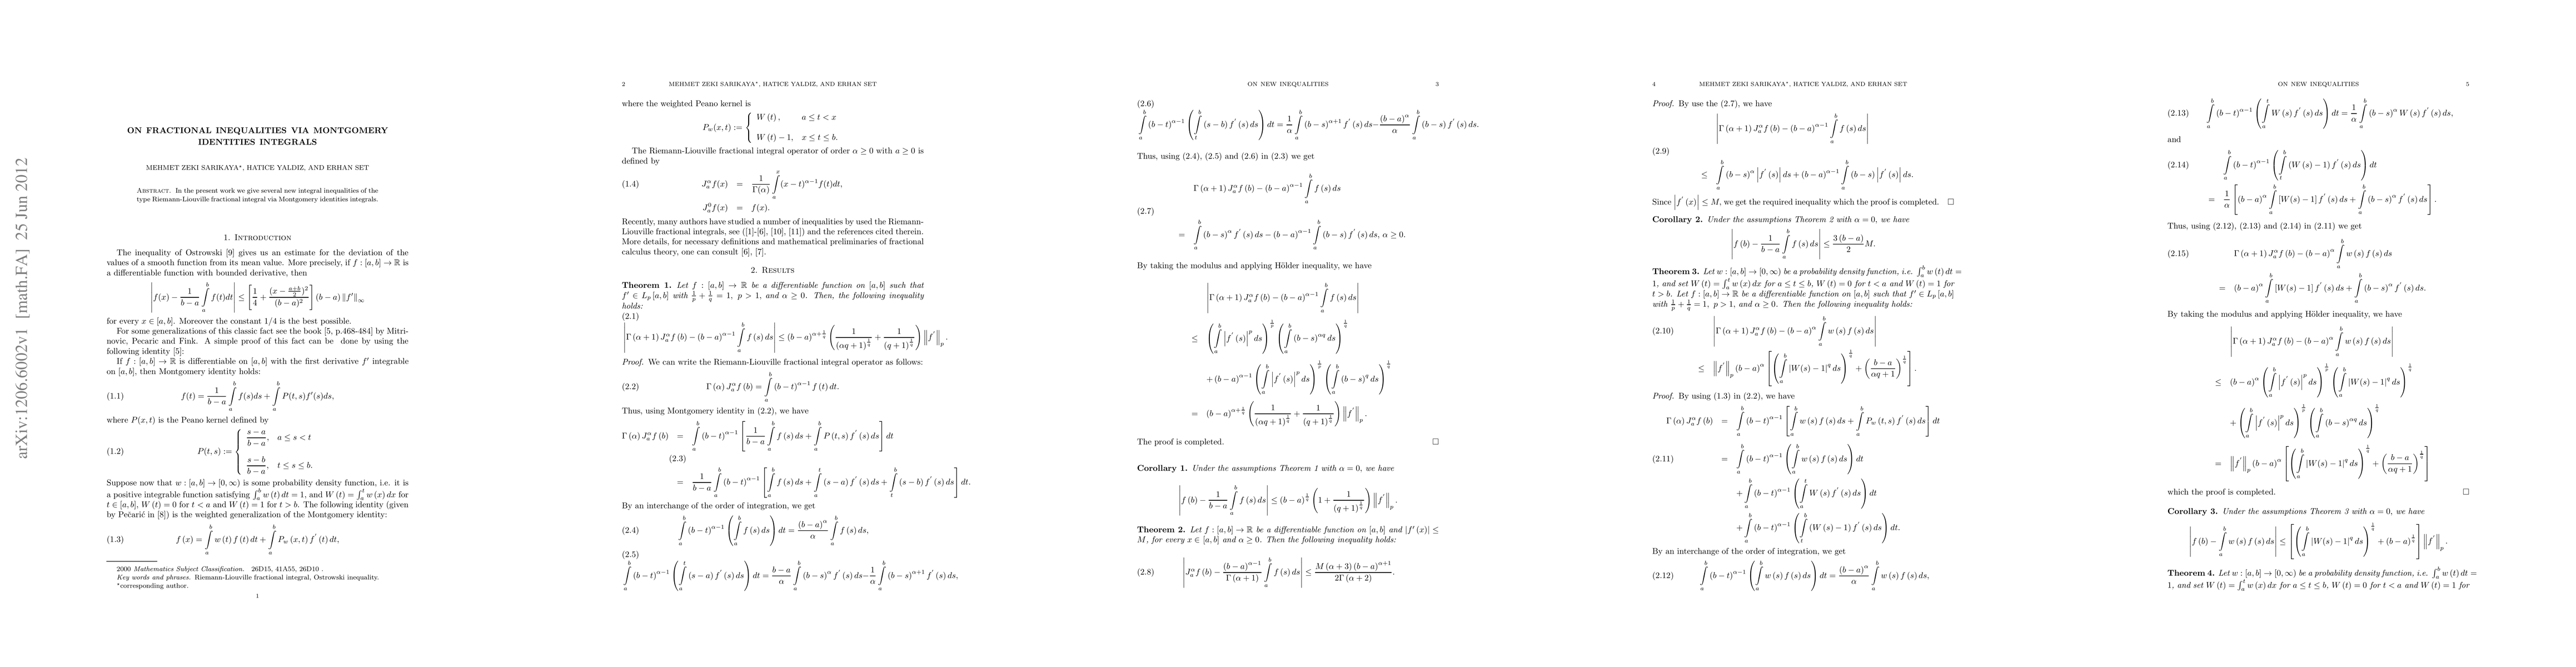 arXiv:1206.6002v1 [math.FA] 25 Jun 2012
ON FRACTIONAL INEQUALITIES VIA MONTGOMERY
IDENTITIES INTEGRALS
MEHMET ZEKI SARIKAYA⋆, HATICE YALDIZ, AND ERHAN SET
Abstract. In the present work we give several new integral inequalities of the
type Riemann-Liouville fractional integral via Montgomery identities integrals.
1. Introduction
The inequality of Ostrowski [9] gives us an estimate for the deviation of the
values of a smooth function from its mean value. More precisely, if f : [a, b] → ℝ is
a differentiable function with bounded derivative, then
|f(x) − 1/(b−a) ∫_a^b f(t)dt| ≤ [1/4 + (x − (a+b)/2)^2/(b − a)^2] (b − a) ‖f′‖_∞
for every x ∈ [a, b]. Moreover the constant 1/4 is the best possible.
For some generalizations of this classic fact see the book [5, p.468-484] by Mitri-
novic, Pecaric and Fink. A simple proof of this fact can be done by using the
following identity [5]:
If f : [a, b] → ℝ is differentiable on [a, b] with the first derivative f′ integrable
on [a, b], then Montgomery identity holds:
(1.1) f(t) = 1/(b − a) ∫_a^b f(s)ds + ∫_a^b P(t, s)f′(s)ds,
where P(x, t) is the Peano kernel defined by
(1.2) P(t, s) := { (s − a)/(b − a), a ≤ s < t
(s − b)/(b − a), t ≤ s ≤ b.
Suppose now that w : [a, b] → [0, ∞) is some probability density function, i.e. it is
a positive integrable function satisfying ∫_a^b w (t) dt = 1, and W (t) = ∫_a^t w (x) dx for
t ∈ [a, b], W (t) = 0 for t < a and W (t) = 1 for t > b. The following identity (given
by Pečarić in [8]) is the weighted generalization of the Montgomery identity:
(1.3) f (x) = ∫_a^b w (t) f (t) dt + ∫_a^b P_w (x, t) f′ (t) dt,
2000 Mathematics Subject Classification. 26D15, 41A55, 26D10 .
Key words and phrases. Riemann-Liouville fractional integral, Ostrowski inequality.
⋆corresponding author.
1
2 MEHMET ZEKI SARIKAYA⋆, HATICE YALDIZ, AND ERHAN SET
where the weighted Peano kernel is
P_w(x, t) := { W (t) , a ≤ t < x
W (t) − 1, x ≤ t ≤ b.
The Riemann-Liouville fractional integral operator of order α ≥ 0 with a ≥ 0 is
defined by
(1.4) J_a^α f(x) = 1/Γ(α) ∫_a^x (x − t)^{α−1} f(t)dt,
J_a^0 f(x) = f(x).
Recently, many authors have studied a number of inequalities by used the Riemann-
Liouville fractional integrals, see ([1]-[6], [10], [11]) and the references cited therein.
More details, for necessary definitions and mathematical preliminaries of fractional
calculus theory, one can consult [6], [7].
2. Results
Theorem 1. Let f : [a, b] → ℝ be a differentiable function on [a, b] such that
f′ ∈ L_p [a, b] with 1/p + 1/q = 1, p > 1, and α ≥ 0. Then, the following inequality
holds:
(2.1)
|Γ (α + 1) J_a^α f (b) − (b − a)^{α−1} ∫_a^b f (s) ds| ≤ (b − a)^{α+1/q} (1/(αq + 1)^{1/q} + 1/(q + 1)^{1/q}) ‖f′‖_p .
Proof. We can write the Riemann-Liouville fractional integral operator as follows:
(2.2) Γ (α) J_a^α f (b) = ∫_a^b (b − t)^{α−1} f (t) dt.
Thus, using Montgomery identity in (2.2), we have
Γ (α) J_a^α f (b) = ∫_a^b (b − t)^{α−1} [1/(b − a) ∫_a^b f (s) ds + ∫_a^b P (t, s) f′ (s) ds] dt
(2.3)
= 1/(b − a) ∫_a^b (b − t)^{α−1} [∫_a^b f (s) ds + ∫_a^t (s − a) f′ (s) ds + ∫_t^b (s − b) f′ (s) ds] dt.
By an interchange of the order of integration, we get
(2.4) ∫_a^b (b − t)^{α−1} (∫_a^b f (s) ds) dt = (b − a)^α/α ∫_a^b f (s) ds,
(2.5)
∫_a^b (b − t)^{α−1} (∫_a^t (s − a) f′ (s) ds) dt = (b − a)/α ∫_a^b (b − s)^α f′ (s) ds − 1/α ∫_a^b (b − s)^{α+1} f′ (s) ds,
ON NEW INEQUALITIES 3
(2.6)
∫_a^b (b − t)^{α−1} (∫_t^b (s − b) f′ (s) ds) dt = 1/α ∫_a^b (b − s)^{α+1} f′ (s) ds − (b − a)^α/α ∫_a^b (b − s) f′ (s) ds.
Thus, using (2.4), (2.5) and (2.6) in (2.3) we get
Γ (α + 1) J_a^α f (b) − (b − a)^{α−1} ∫_a^b f (s) ds
(2.7)
= ∫_a^b (b − s)^α f′ (s) ds − (b − a)^{α−1} ∫_a^b (b − s) f′ (s) ds, α ≥ 0.
By taking the modulus and applying Hölder inequality, we have
|Γ (α + 1) J_a^α f (b) − (b − a)^{α−1} ∫_a^b f (s) ds|
≤ (∫_a^b |f′ (s)|^p ds)^{1/p} (∫_a^b (b − s)^{αq} ds)^{1/q}
+ (b − a)^{α−1} (∫_a^b |f′ (s)|^p ds)^{1/p} (∫_a^b (b − s)^q ds)^{1/q}
= (b − a)^{α+1/q} (1/(αq + 1)^{1/q} + 1/(q + 1)^{1/q}) ‖f′‖_p .
The proof is completed. □
Corollary 1. Under the assumptions Theorem 1 with α = 0, we have
|f (b) − 1/(b − a) ∫_a^b f (s) ds| ≤ (b − a)^{1/q} (1 + 1/(q + 1)^{1/q}) ‖f′‖_p .
Theorem 2. Let f : [a, b] → ℝ be a differentiable function on [a, b] and |f′ (x)| ≤
M, for every x ∈ [a, b] and α ≥ 0. Then the following inequality holds:
(2.8) |J_a^α f (b) − (b − a)^{α−1}/Γ (α + 1) ∫_a^b f (s) ds| ≤ M (α + 3) (b − a)^{α+1}/2Γ (α + 2) .
4 MEHMET ZEKI SARIKAYA⋆, HATICE YALDIZ, AND ERHAN SET
Proof. By use the (2.7), we have
|Γ (α + 1) J_a^α f (b) − (b − a)^{α−1} ∫_a^b f (s) ds|
(2.9)
≤ ∫_a^b (b − s)^α |f′ (s)| ds + (b − a)^{α−1} ∫_a^b (b − s) |f′ (s)| ds.
Since |f′ (x)| ≤ M, we get the required inequality which the proof is completed. □
Corollary 2. Under the assumptions Theorem 2 with α = 0, we have
|f (b) − 1/(b − a) ∫_a^b f (s) ds| ≤ 3 (b − a)/2 M.
Theorem 3. Let w : [a, b] → [0, ∞) be a probability density function, i.e. ∫_a^b w (t) dt =
1, and set W (t) = ∫_a^t w (x) dx for a ≤ t ≤ b, W (t) = 0 for t < a and W (t) = 1 for
t > b. Let f : [a, b] → ℝ be a differentiable function on [a, b] such that f′ ∈ L_p [a, b]
with 1/p + 1/q = 1, p > 1, and α ≥ 0. Then the following inequality holds:
(2.10) |Γ (α + 1) J_a^α f (b) − (b − a)^α ∫_a^b w (s) f (s) ds|
≤ ‖f′‖_p (b − a)^α [(∫_a^b |W(s) − 1|^q ds)^{1/q} + ((b − a)/(αq + 1))^{1/q}] .
Proof. By using (1.3) in (2.2), we have
Γ (α) J_a^α f (b) = ∫_a^b (b − t)^{α−1} [∫_a^b w (s) f (s) ds + ∫_a^b P_w (t, s) f′ (s) ds] dt
(2.11) = ∫_a^b (b − t)^{α−1} (∫_a^b w (s) f (s) ds) dt
+ ∫_a^b (b − t)^{α−1} (∫_a^t W (s) f′ (s) ds) dt
+ ∫_a^b (b − t)^{α−1} (∫_t^b (W (s) − 1) f′ (s) ds) dt.
By an interchange of the order of integration, we get
(2.12) ∫_a^b (b − t)^{α−1} (∫_a^b w (s) f (s) ds) dt = (b − a)^α/α ∫_a^b w (s) f (s) ds,
ON NEW INEQUALITIES 5
(2.13) ∫_a^b (b − t)^{α−1} (∫_a^t W (s) f′ (s) ds) dt = 1/α ∫_a^b (b − s)^α W (s) f′ (s) ds,
and
(2.14) ∫_a^b (b − t)^{α−1} (∫_t^b (W (s) − 1) f′ (s) ds) dt
= 1/α [(b − a)^α ∫_a^b [W(s) − 1] f′ (s) ds + ∫_a^b (b − s)^α f′ (s) ds] .
Thus, using (2.12), (2.13) and (2.14) in (2.11) we get
(2.15) Γ (α + 1) J_a^α f (b) − (b − a)^α ∫_a^b w (s) f (s) ds
= (b − a)^α ∫_a^b [W(s) − 1] f′ (s) ds + ∫_a^b (b − s)^α f′ (s) ds.
By taking the modulus and applying Hölder inequality, we have
|Γ (α + 1) J_a^α f (b) − (b − a)^α ∫_a^b w (s) f (s) ds|
≤ (b − a)^α (∫_a^b |f′ (s)|^p ds)^{1/p} (∫_a^b |W(s) − 1|^q ds)^{1/q}
+ (∫_a^b |f′ (s)|^p ds)^{1/p} (∫_a^b (b − s)^{αq} ds)^{1/q}
= ‖f′‖_p (b − a)^α [(∫_a^b |W(s) − 1|^q ds)^{1/q} + ((b − a)/(αq + 1))^{1/q}]
which the proof is completed. □
Corollary 3. Under the assumptions Theorem 3 with α = 0, we have
|f (b) − ∫_a^b w (s) f (s) ds| ≤ [(∫_a^b |W(s) − 1|^q ds)^{1/q} + (b − a)^{1/q}] ‖f′‖_p .
Theorem 4. Let w : [a, b] → [0, ∞) be a probability density function, i.e. ∫_a^b w (t) dt =
1, and set W (t) = ∫_a^t w (x) dx for a ≤ t ≤ b, W (t) = 0 for t < a and W (t) = 1 for